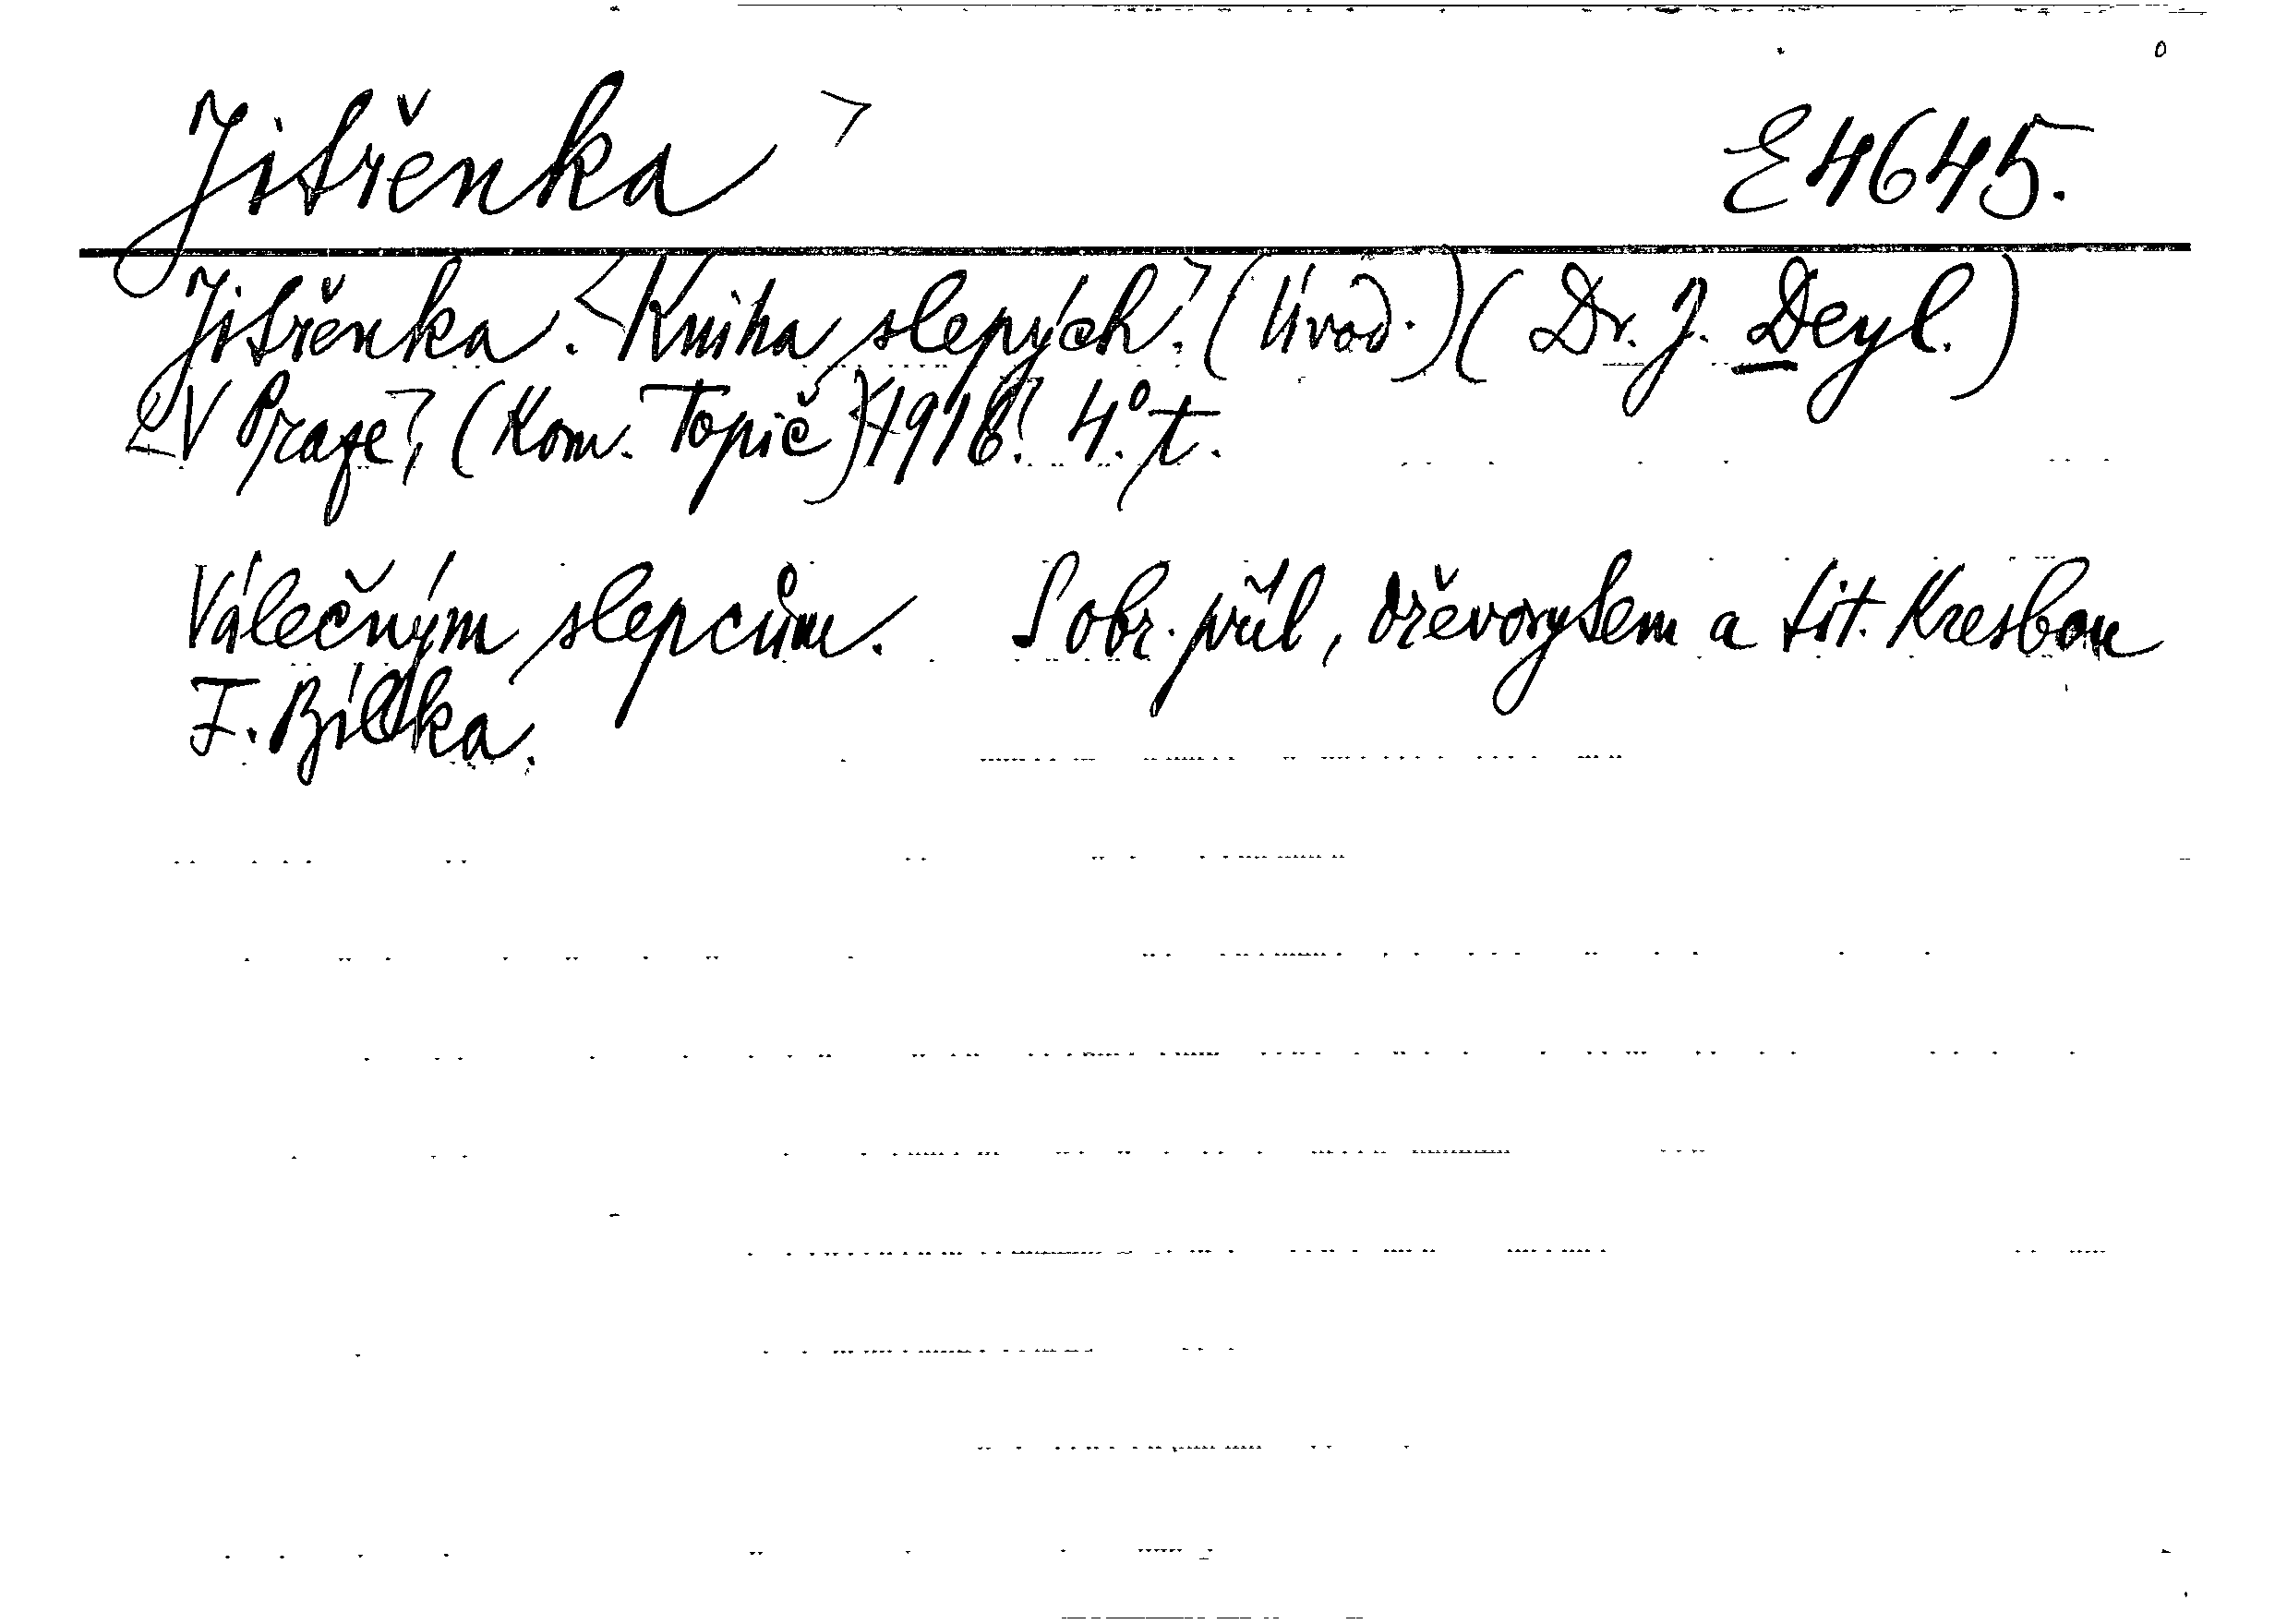 Jitřenka E4645.
Jitřenka. <Kniha slepých.> (Úvod.) (Dr. J. Deyl.)
<V Praze>, (Kom. Topič) <1916>. 4.° t.
Válečným slepcům. S obr. příl, dřevorytem a tit. Kresbou
F. Bílka.